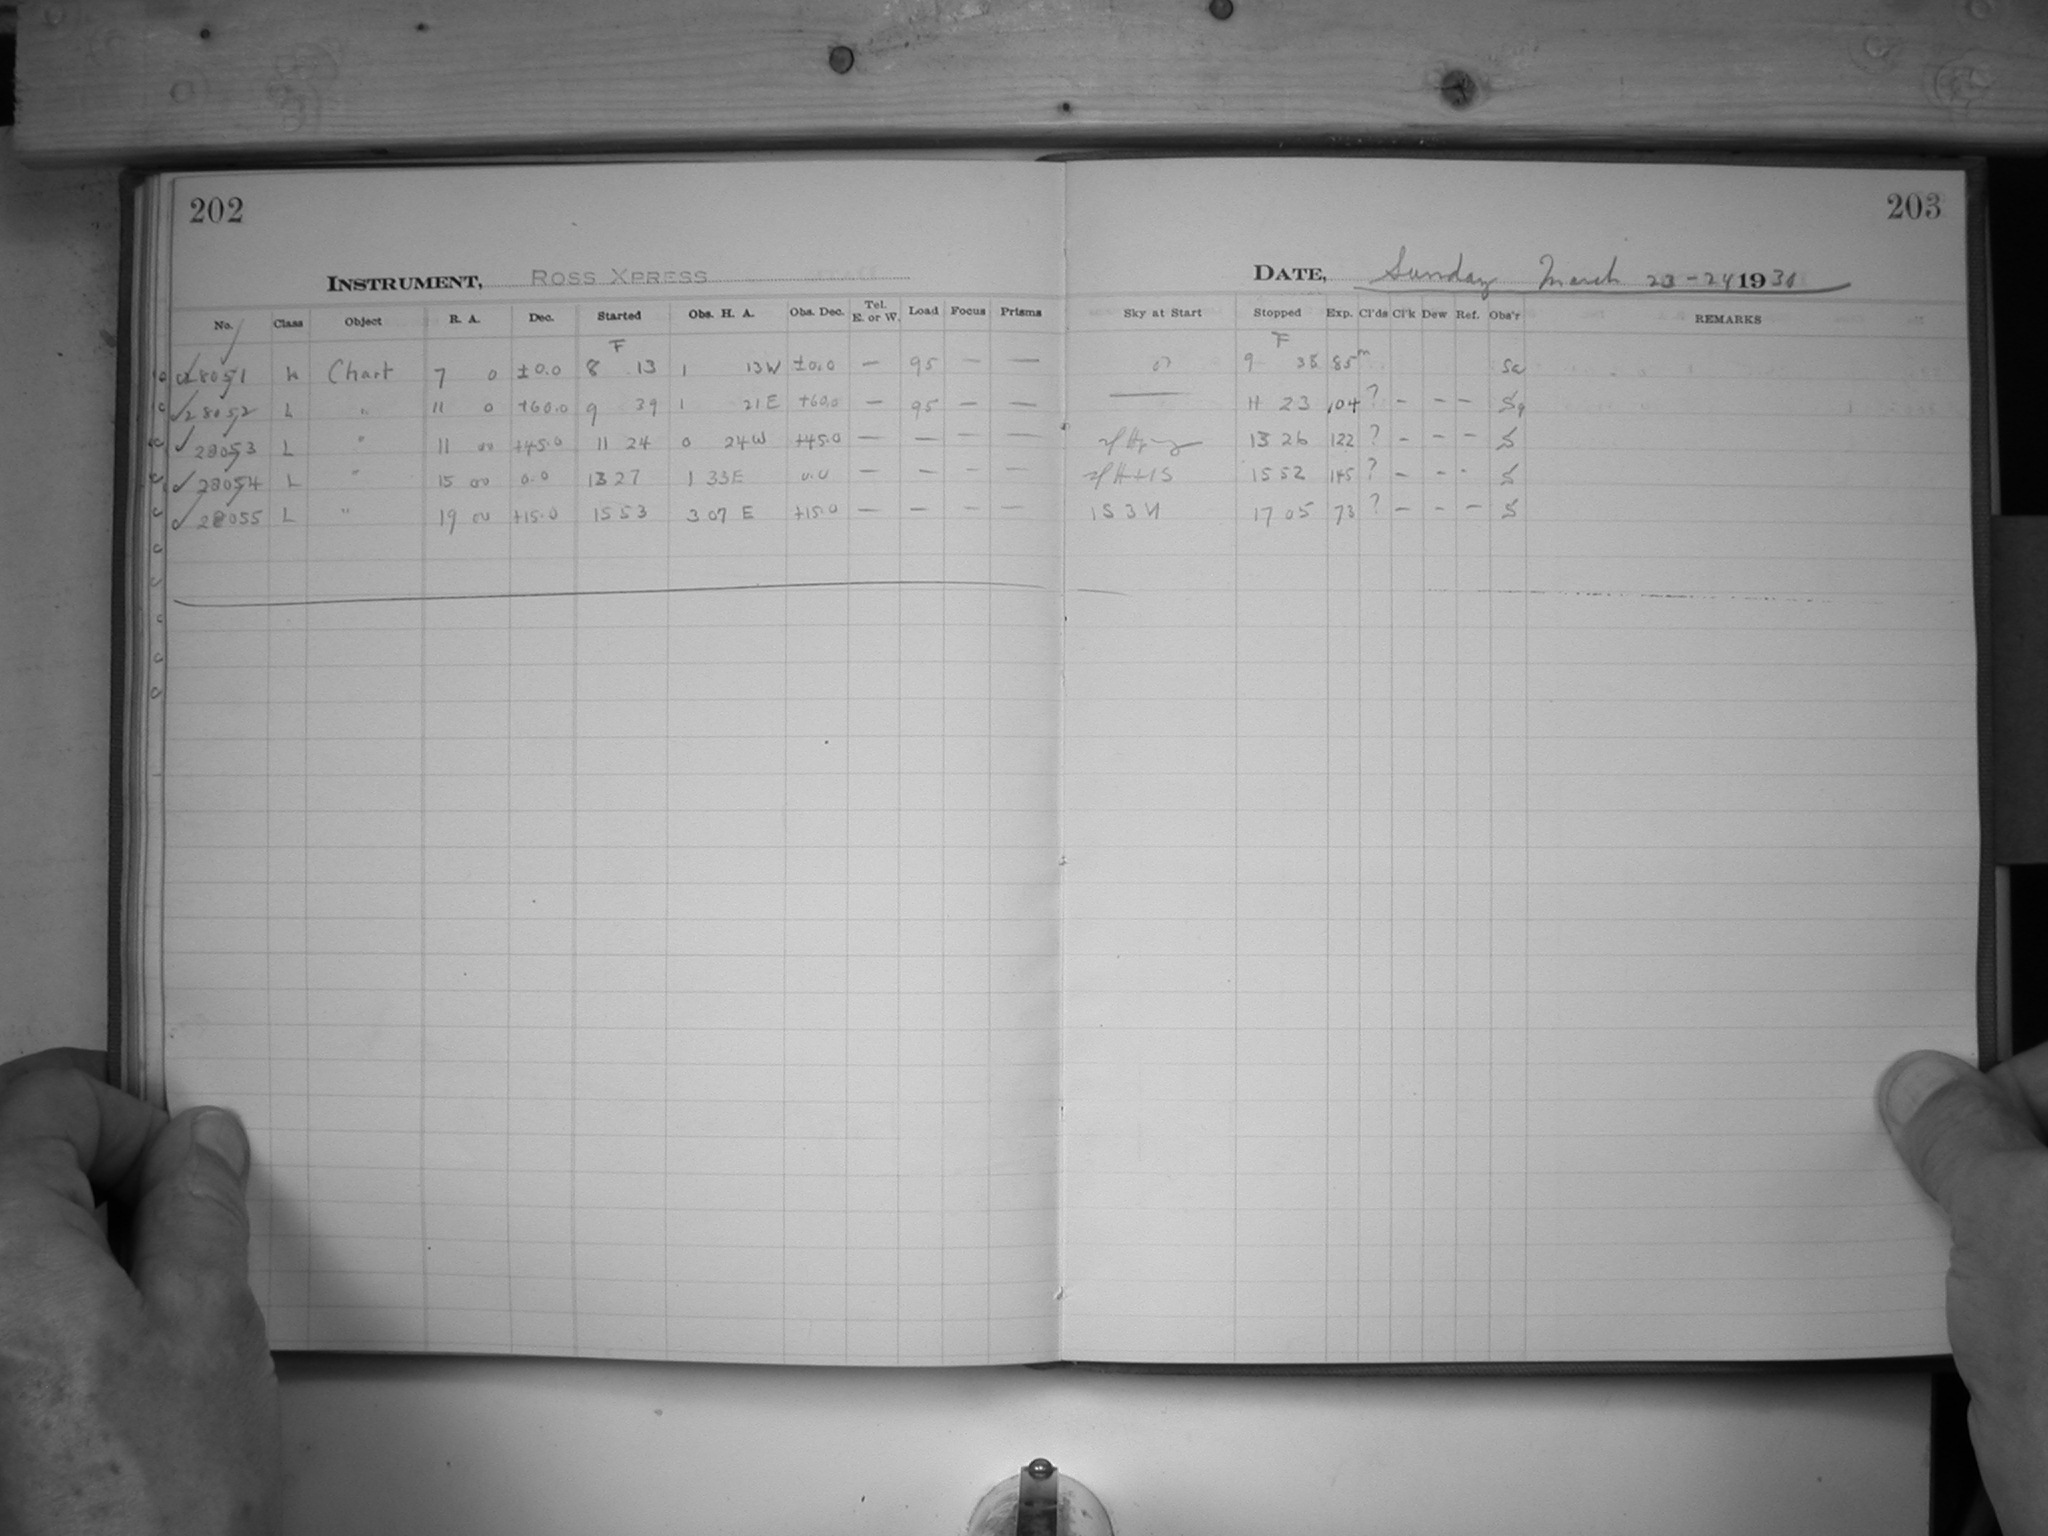 202
INSTRUMENT, ROSS XPRESS
No. Class Object R. A. Dec. Started Obs. H. A. Obs. Dec. Tel. E. or W. Load Focus Prisms
F
28051 L Chart 7 0 ±0.0 8 13 1 13W ±0.0 — 95 — —
28052 L " 11 0 +60.0 9 39 1 21E +60.0 — 95 — —
28053 L " 11 00 +45.0 11 24 0 24W +45.0 — — — —
28054 L " 15 00 0.0 13 27 1 33E 0.0 — — — —
28055 L " 19 00 +15.0 15 53 3 07 E +15.0 — — — —
203
DATE, Sunday March 23-24 1930
Sky at Start Stopped Exp. Cl'ds Cl'k Dew Ref. Obs'r REMARKS
F
9 38 85m
11 23 104 ? - - -
13 26 122 ? - - - S
15 52 145 ? - - - S
17 05 73 ? - - - S